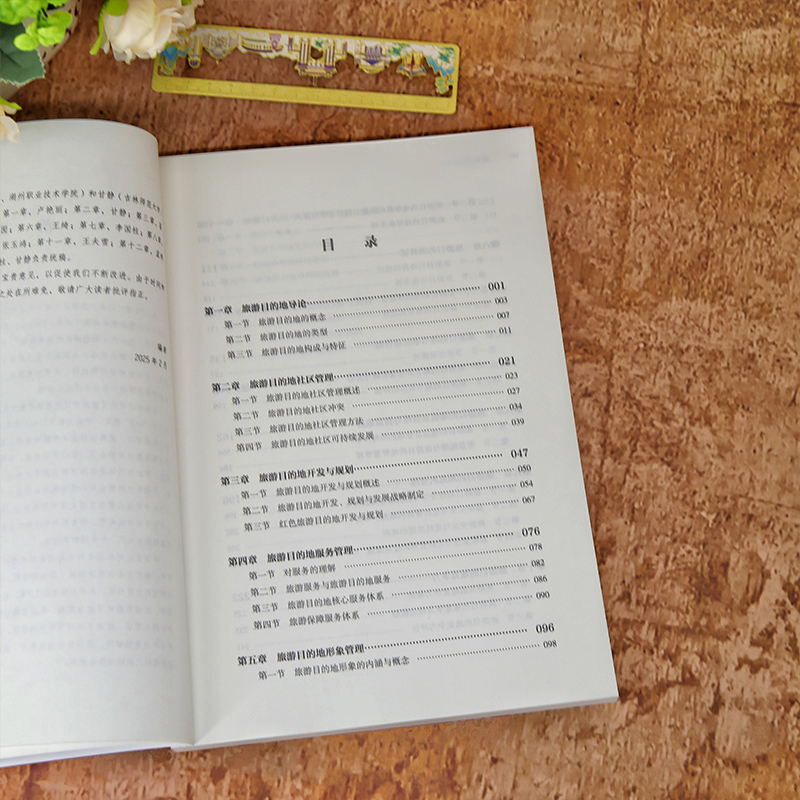 、湖州职业技术学院）和甘静（吉林师范大学
第一章，卢艳丽；第二章，甘静；第三章，
国；第六章，王绮；第七章，李国柱；第八章，
张玉鸿；第十一章，王大雪；第十二章，
柱、甘静负责统稿。
宝贵意见，以促使我们不断改进。由于时间
之处在所难免，敬请广大读者批评指正。
编者
2025年2月
目 录
第一章 旅游目的地导论 001
第一节 旅游目的地的概念 003
第二节 旅游目的地的类型 007
第三节 旅游目的地构成与特征 011
第二章 旅游目的地社区管理 021
第一节 旅游目的地社区管理概述 023
第二节 旅游目的地社区冲突 027
第三节 旅游目的地社区管理方法 034
第四节 旅游目的地社区可持续发展 039
第三章 旅游目的地开发与规划 047
第一节 旅游目的地开发与规划概述 050
第二节 旅游目的地开发、规划与发展战略制定 054
第三节 红色旅游目的地开发与规划 067
第四章 旅游目的地服务管理 076
第一节 对服务的理解 078
第二节 旅游服务与旅游目的地服务 082
第三节 旅游目的地核心服务体系 086
第四节 旅游保障服务体系 090
第五章 旅游目的地形象管理 096
第一节 旅游目的地形象的内涵与概念 098